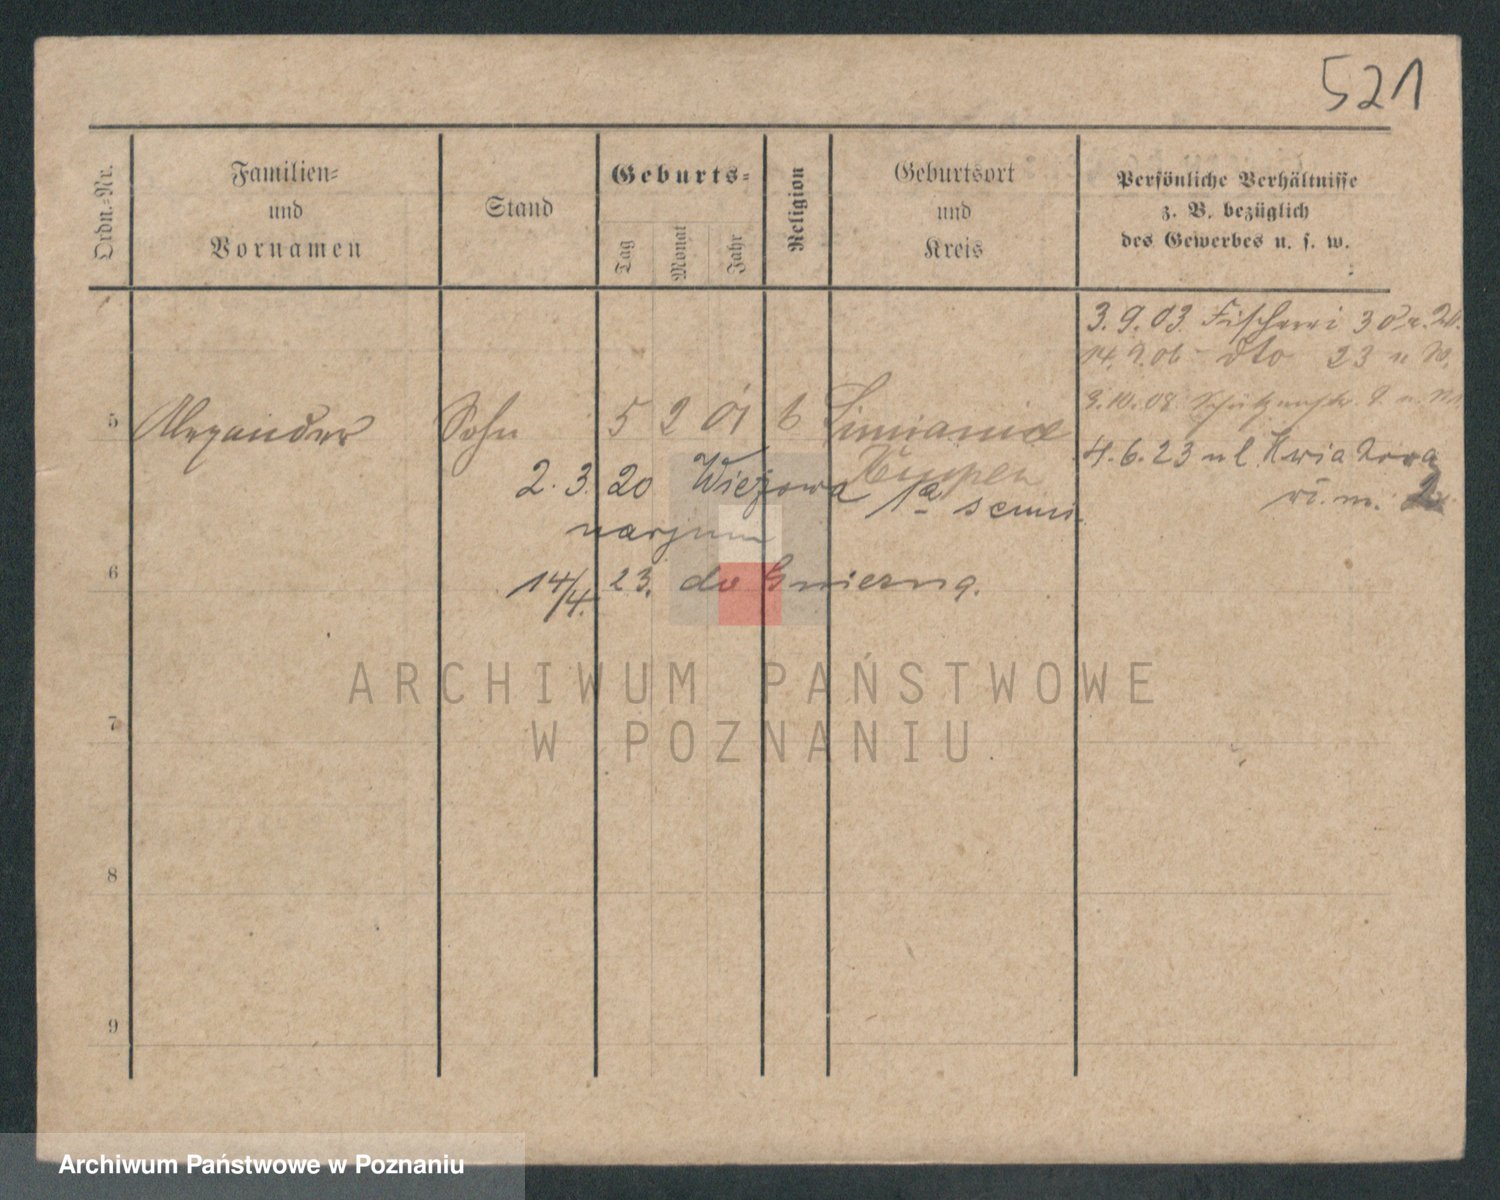 521
Ordn.-Nr.
Familien-
und
Vornamen
Stand
Geburts-
Tag
Monat
Jahr
Religion
Geburtsort
und
Kreis
Persönliche Verhältnisse
z. B. bezüglich
des Gewerbes u. s. w.
3.9.03 Fischerei 30
14.9.06 dto 23
3.10.08
5 Alexander Sohn 5 2 01
4.6.23 ul Kwiatowa
2
2. 3. 20 Wieżowa 1a semi
narjum
6
14/4. 23. do Gniezna.
7
8
9
ARCHIWUM PAŃSTWOWE
W POZNANIU
Archiwum Państwowe w Poznaniu